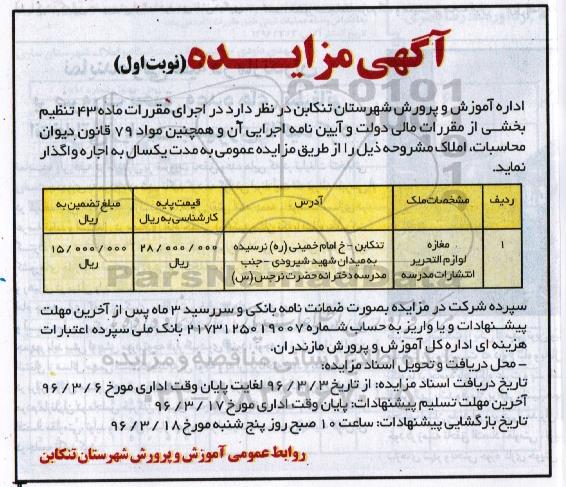 آگهی مزایـــده (نوبت اول)
اداره آموزش و پرورش شهرستان تنکابن در نظر دارد در اجرای مقررات ماده ۴۳ تنظیم
بخشی از مقررات مالی دولت و آیین نامه اجرایی آن و همچنین مواد ۷۹ قانون دیوان
محاسبات، املاک مشروحه ذیل را از طریق مزایده عمومی به مدت یکسال به اجاره واگذار
نماید.
ردیف مشخصات ملک آدرس قیمت پایه کارشناسی به ریال مبلغ تضمین به ریال
۱ مغازه لوازم التحریر انتشارات مدرسه تنکابن - خ امام خمینی (ره) نرسیده به میدان شهید شیرودی - جنب مدرسه دخترانه حضرت نرجس (س) ۲۸/۰۰۰/۰۰۰ ریال ۱۵/۰۰۰/۰۰۰ ریال
سپرده شرکت در مزایده بصورت ضمانت نامه بانکی و سررسید ۳ ماه پس از آخرین مهلت
پیشنهادات و یا واریز به حساب شماره ۲۱۷۳۱۲۵۰۱۹۰۰۷ بانک ملی سپرده اعتبارات
هزینه ای اداره کل آموزش و پرورش مازندران.
- محل دریافت و تحویل اسناد مزایده:
تاریخ دریافت اسناد مزایده: از تاریخ ۹۶/۳/۳ لغایت پایان وقت اداری مورخ ۹۶/۳/۶
آخرین مهلت تسلیم پیشنهادات: پایان وقت اداری مورخ ۹۶/۳/۱۷
تاریخ بازگشایی پیشنهادات: ساعت ۱۰ صبح روز پنج شنبه مورخ ۹۶/۳/۱۸
روابط عمومی آموزش و پرورش شهرستان تنکابن